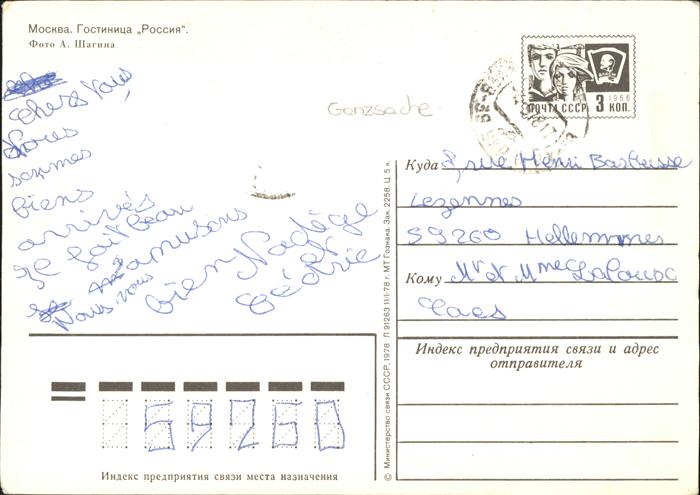 Москва. Гостиница „Россия“.
Фото А. Шагина
chers vous
Nous
sommes
biens
arrivés
Il fait beau
Nous nous amusons
bien Nadège
et
Cédric
Gonzsache
ПОЧТА СССР 3 КОП.
1966
Куда 9 rue Henri Barbusse
Lezennes
59260 Hellemmes
Кому Mr et Mme
Claes
Индекс предприятия связи и адрес
отправителя
59260
Индекс предприятия связи места назначения
© Министерство связи СССР, 1978 Л 91263 11/I-78 г. МТ Гознака. Зак. 2258. Ц. 5 к.